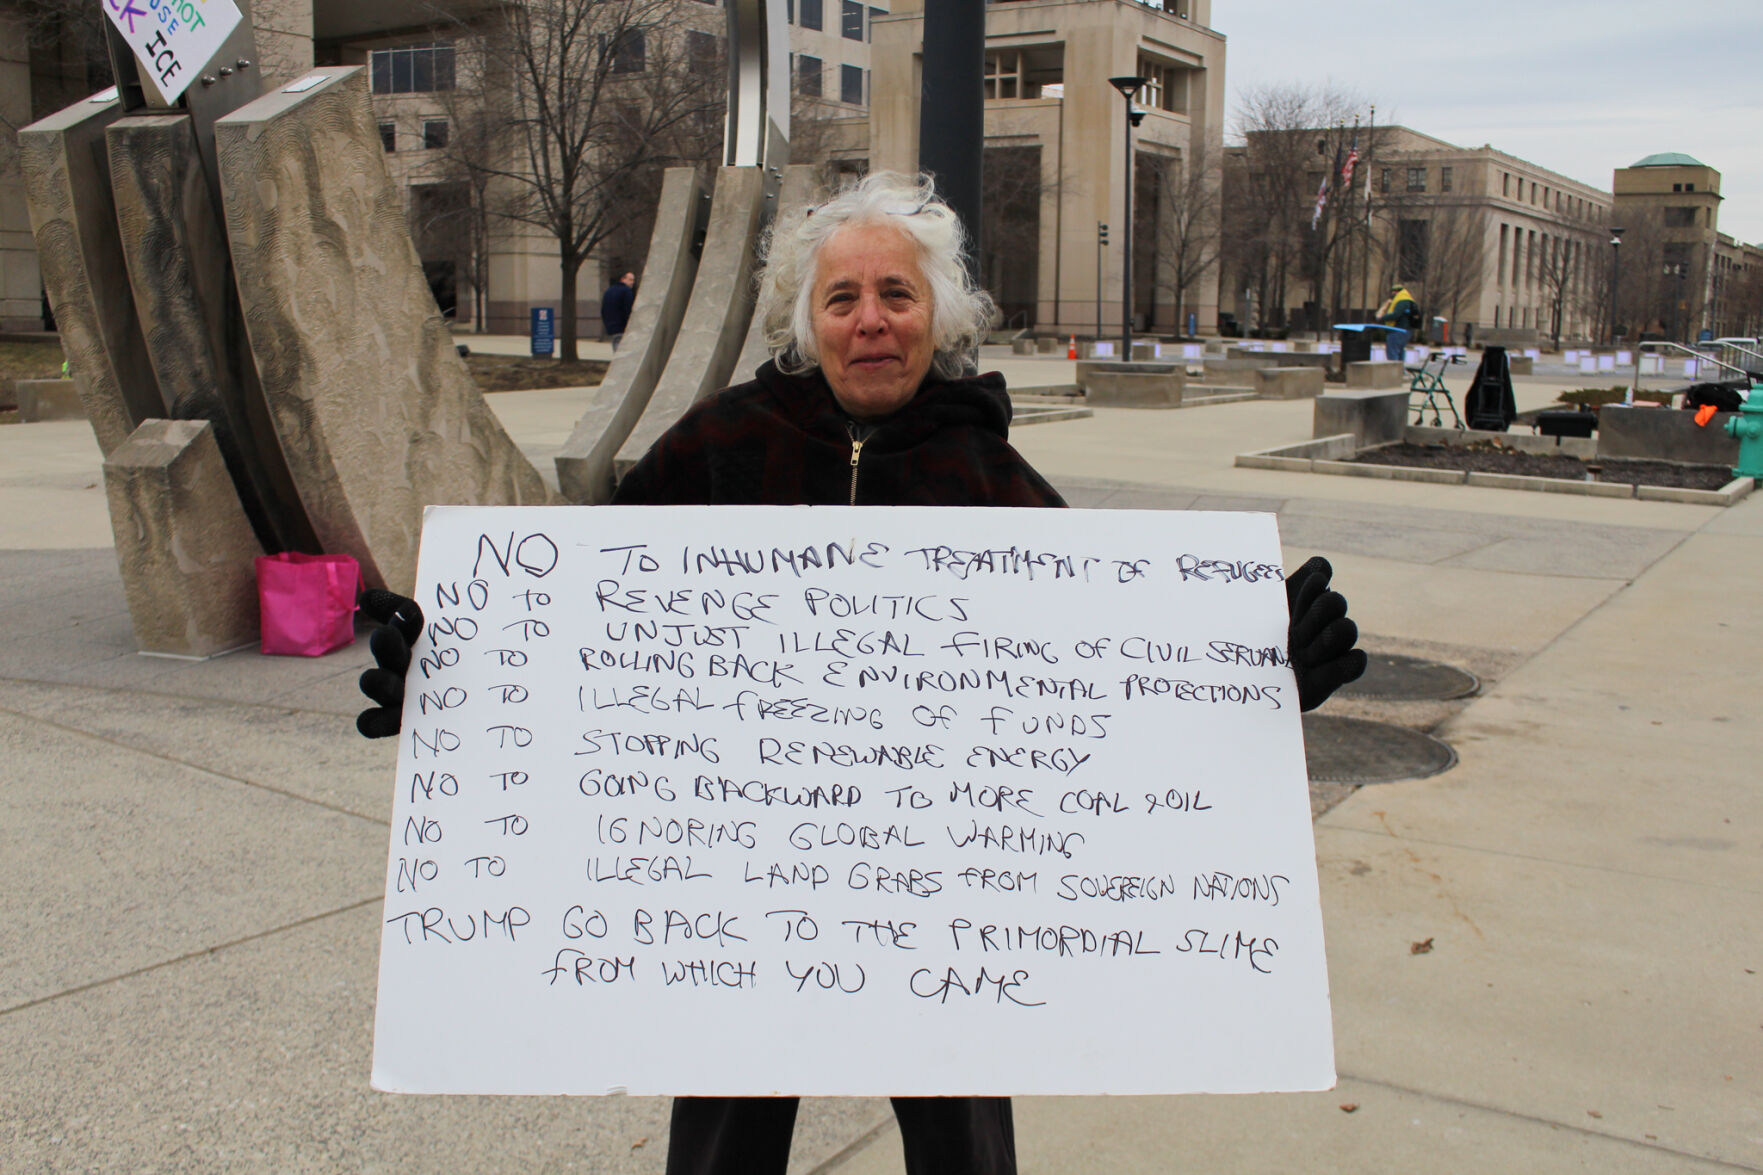 NOT
USE
CK ICE
NO TO INHUMANE TREATMENT OF REFUGEES
NO TO REVENGE POLITICS
NO TO UNJUST ILLEGAL FIRING OF CIVIL SERVAN
NO TO ROLLING BACK ENVIRONMENTAL PROTECTIONS
NO TO ILLEGAL FREEZING OF FUNDS
NO TO STOPPING RENEWABLE ENERGY
NO TO GOING BACKWARD TO MORE COAL & OIL
NO TO IGNORING GLOBAL WARMING
NO TO ILLEGAL LAND GRABS FROM SOVEREIGN NATIONS
TRUMP GO BACK TO THE PRIMORDIAL SLIME
FROM WHICH YOU CAME